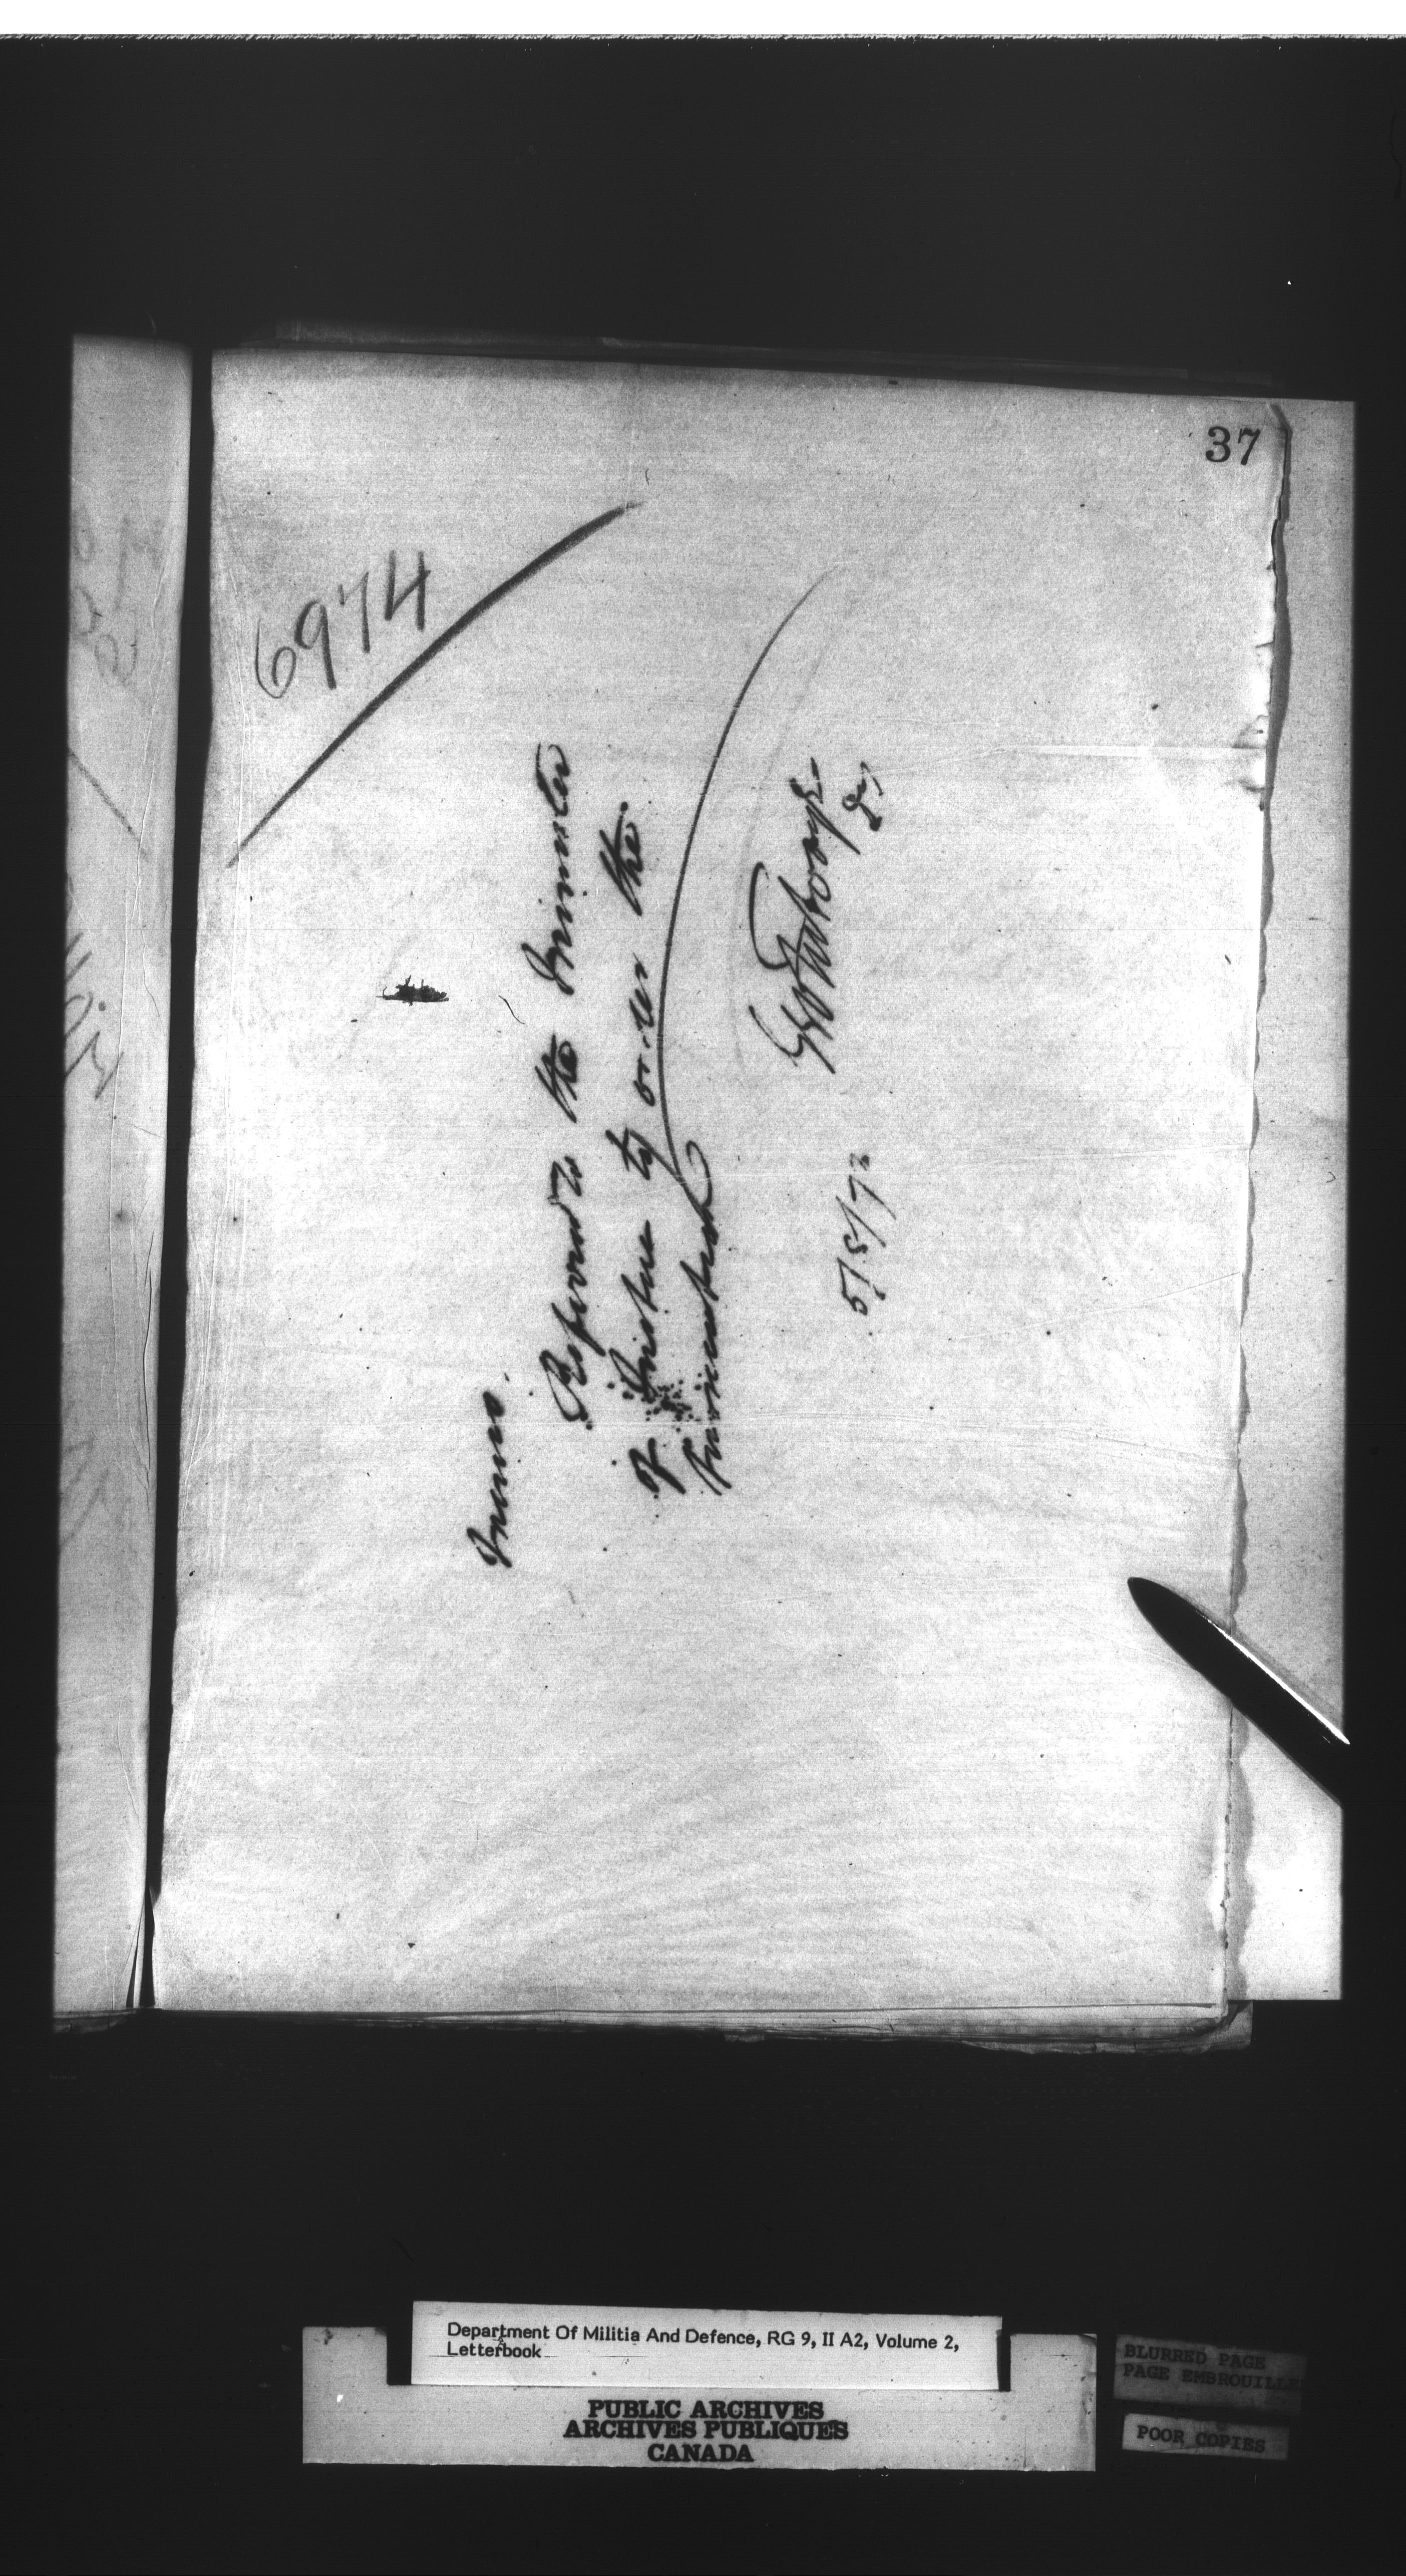 37
6974
Memo.
Referred to the Minister
of Justice by order the
5/5/73
Department Of Militia And Defence, RG 9, II A2, Volume 2,
Letterbook
PUBLIC ARCHIVES
ARCHIVES PUBLIQUES
CANADA
BLURRED PAGE
PAGE EMBROUILLE
POOR COPIES